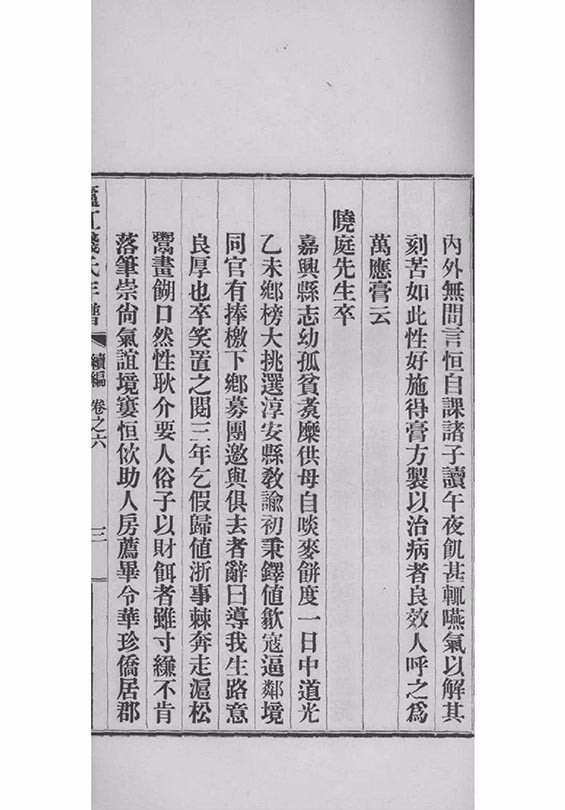 內外無間言恒自課諸子讀午夜飢甚輒嚥氣以解其
刻苦如此性好施得膏方製以治病者良效人呼之爲
萬應膏云
曉庭先生卒
嘉興縣志幼孤貧煮糜供母自啖麥餅度一日中道光
乙未鄕榜大挑選淳安縣敎諭初秉鐸値歙寇逼鄰境
同官有捧檄下鄕募團邀與俱去者辭曰導我生路意
良厚也卒笑置之閱三年乞假歸値浙事棘奔走滬松
鬻畫餬口然性耿介要人俗子以財餌者雖寸縑不肯
落筆崇尙氣誼境窶恒佽助人房薦畢令華珍僑居郡
廬江錢氏年譜 續編 卷之六 三